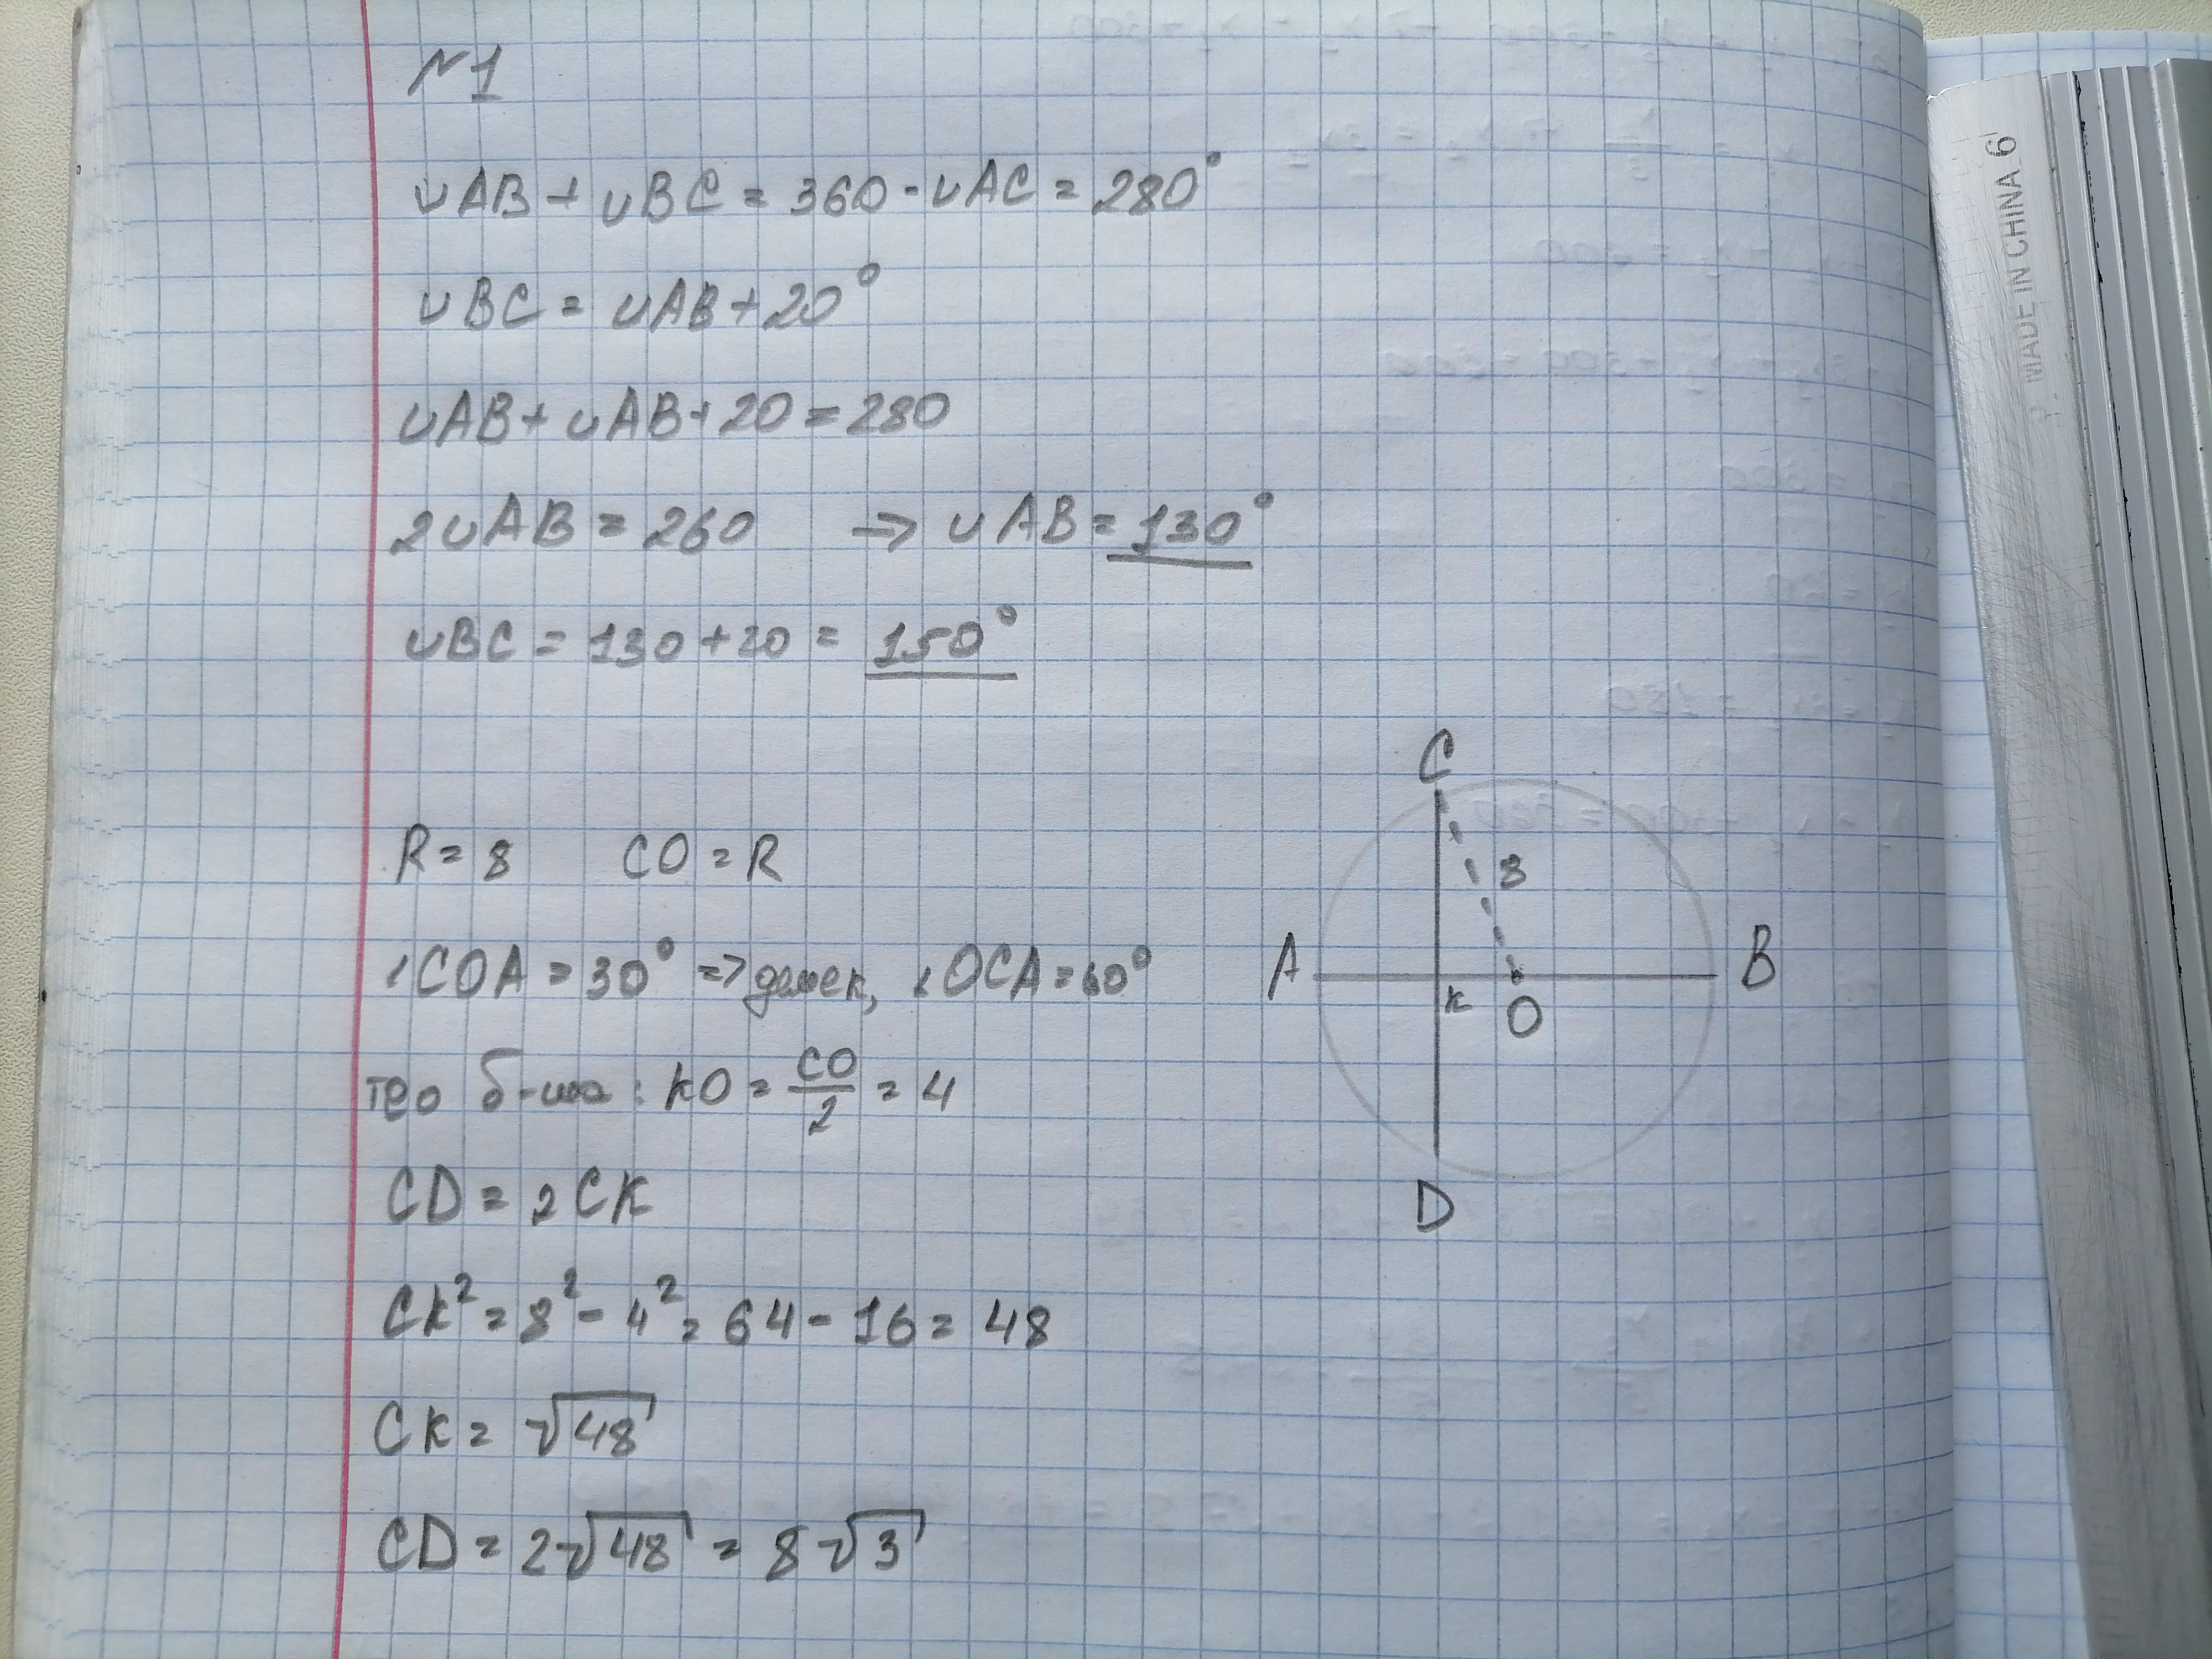 №1
∪AB + ∪BC = 360 - ∪AC = 280°
∪BC = ∪AB + 20°
∪AB + ∪AB + 20 = 280
2∪AB = 260 => ∪AB = 130°
∪BC = 130 + 20 = 150°
R = 8 CO = R
∠COA = 30° => ∠OCA = 60°
тео : KO = CO/2 = 4
CD = 2CK
CK² = 8² - 4² = 64 - 16 = 48
CK = √48
CD = 2√48 = 8√3
C
8
A
B
K
O
D
P. MADE IN CHINA 6